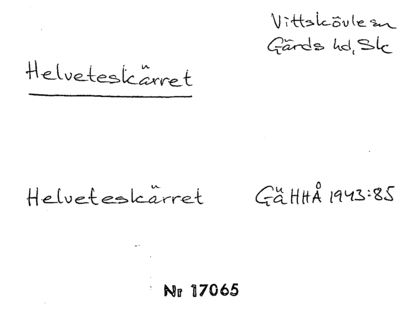 Vittskövle sn
Gärds hd, Sk
Helveteskärret
Helveteskärret GäHHÅ 1943:85
Nr 17065